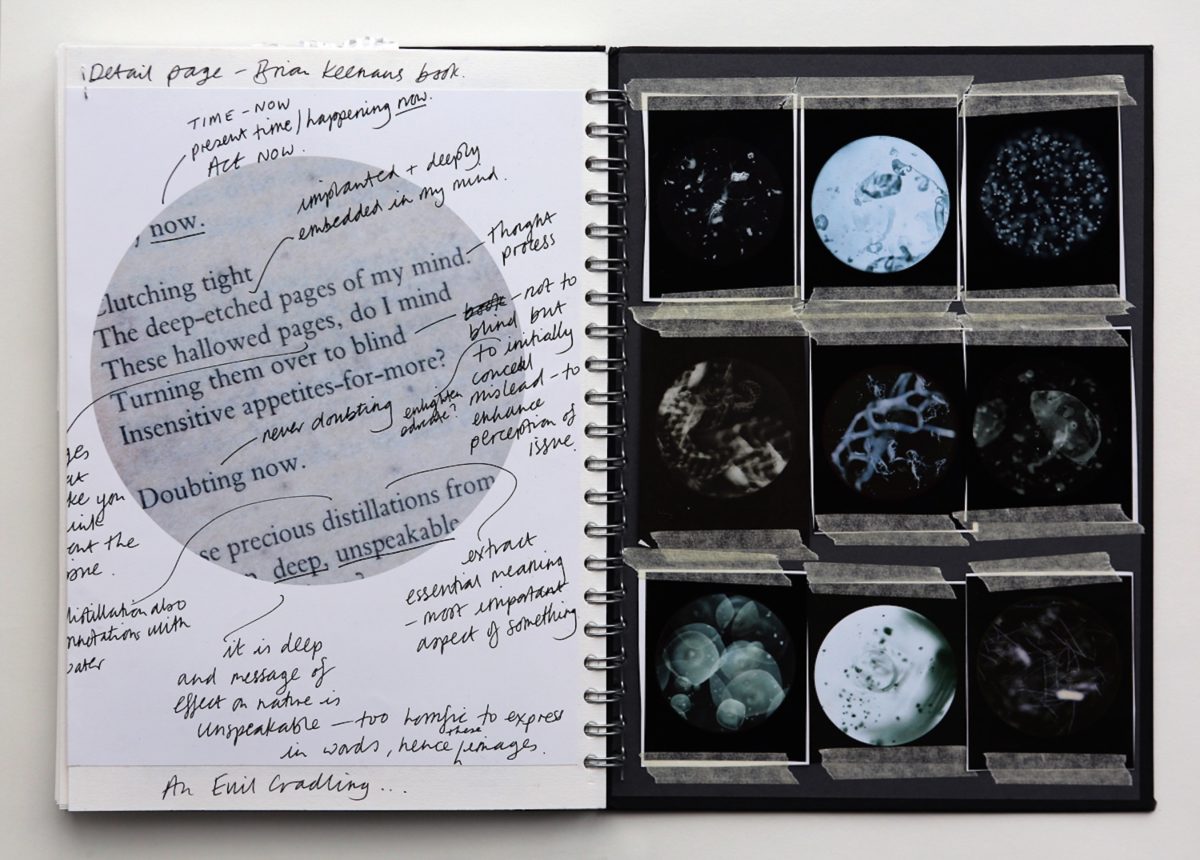 Detail page – Brian Keenans book.
TIME – NOW
present time / happening now.
ACT NOW.
implanted + deeply
embedded in my mind.
, now.
Clutching tight
The deep-etched pages of my mind.
These hallowed pages, do I mind
Turning them over to blind
Insensitive appetites-for-more?
Doubting now.
se precious distillations from
deep, unspeakable
thought
process
– not to
blind but
to initially
conceal
mislead – to
enhance
perception of
issue.
enlighten
educate?
never doubting
ges
at
ke you
ink
out the
one.
distillation also
nnotations with
water
extract
essential meaning
– most important
aspect of something
it is deep
and message of
effect on nature is
unspeakable – too horrific to express
in words, hence these images.
An Evil Cradling...